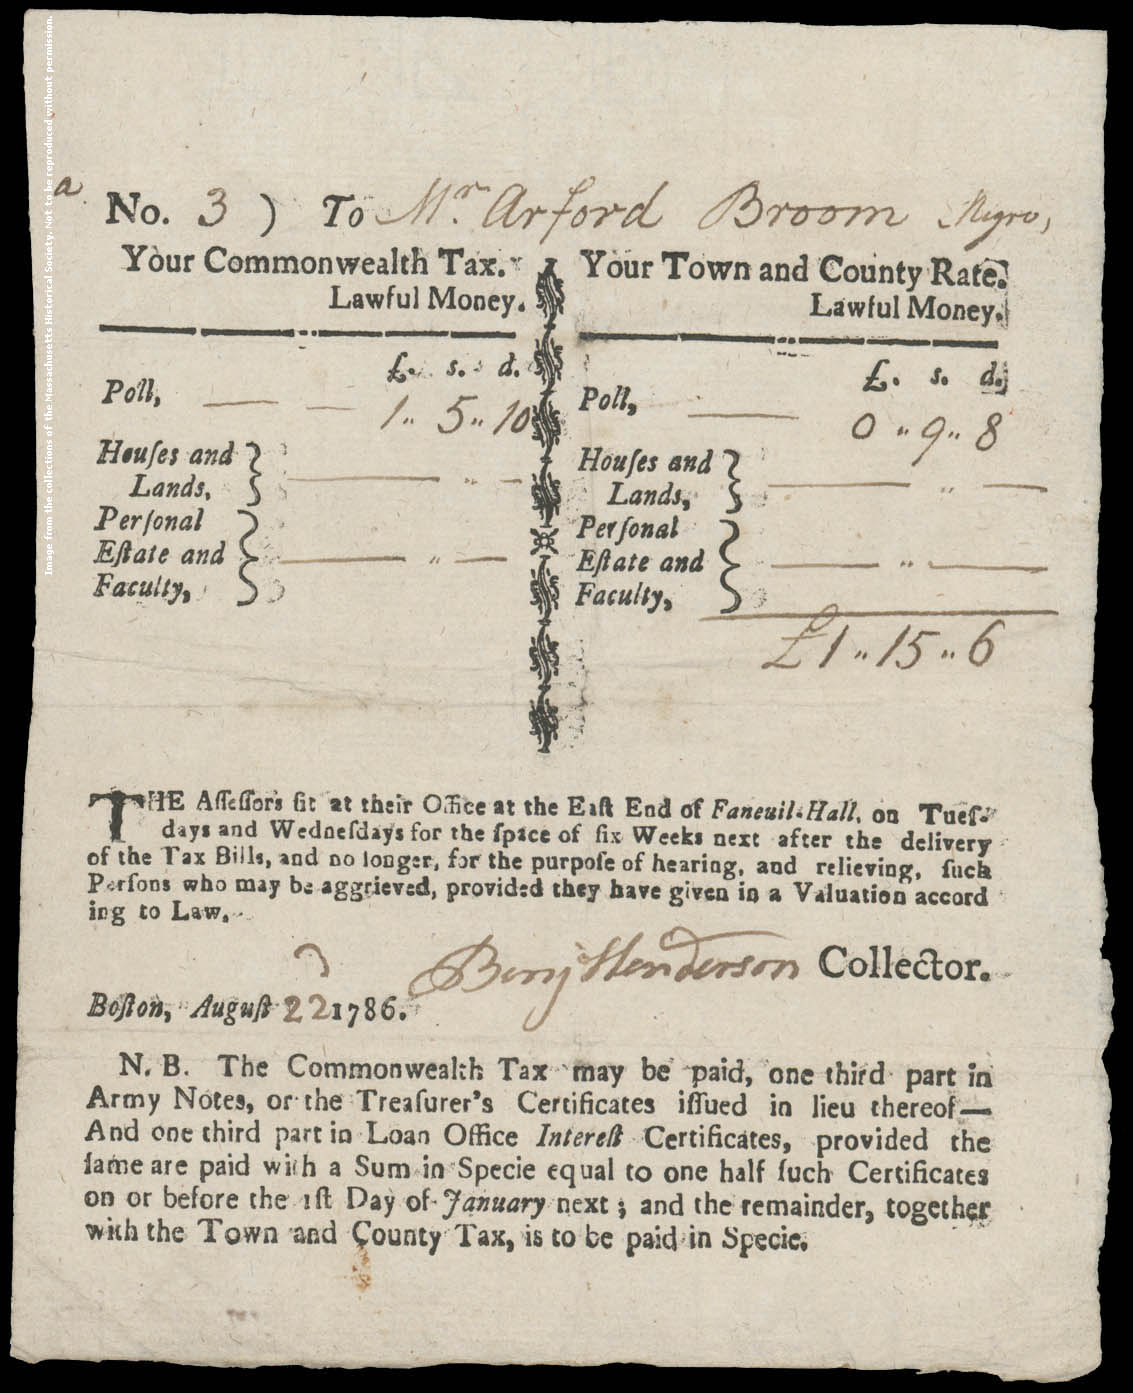 Image from the collections of the Massachusetts Historical Society. Not to be reproduced without permission.
a
No. 3 ) To Mr. Arford Broom Negro,
Your Commonwealth Tax.
Lawful Money.
£. s. d.
Poll, — — 1 " 5 " 10
Houſes and
Lands, — " —
Perſonal
Eſtate and — " —
Faculty,
Your Town and County Rate.
Lawful Money.
£. s. d.
Poll, — 0 " 9 " 8
Houſes and
Lands, — " —
Perſonal
Eſtate and — " —
Faculty,
£1 " 15 " 6
THE Aſſeſſors ſit at their Office at the Eaſt End of Faneuil-Hall, on Tueſ-
days and Wedneſdays for the ſpace of ſix Weeks next after the delivery
of the Tax Bills, and no longer, for the purpoſe of hearing, and relieving, ſuch
Perſons who may be aggrieved, provided they have given in a Valuation accord
ing to Law.
Benj Henderson Collector.
Boſton, Auguſt 22 1786.
N. B. The Commonwealth Tax may be paid, one third part in
Army Notes, or the Treaſurer's Certificates iſſued in lieu thereof—
And one third part in Loan Office Intereſt Certificates, provided the
ſame are paid with a Sum in Specie equal to one half ſuch Certificates
on or before the 1ſt Day of January next ; and the remainder, together
with the Town and County Tax, is to be paid in Specie.